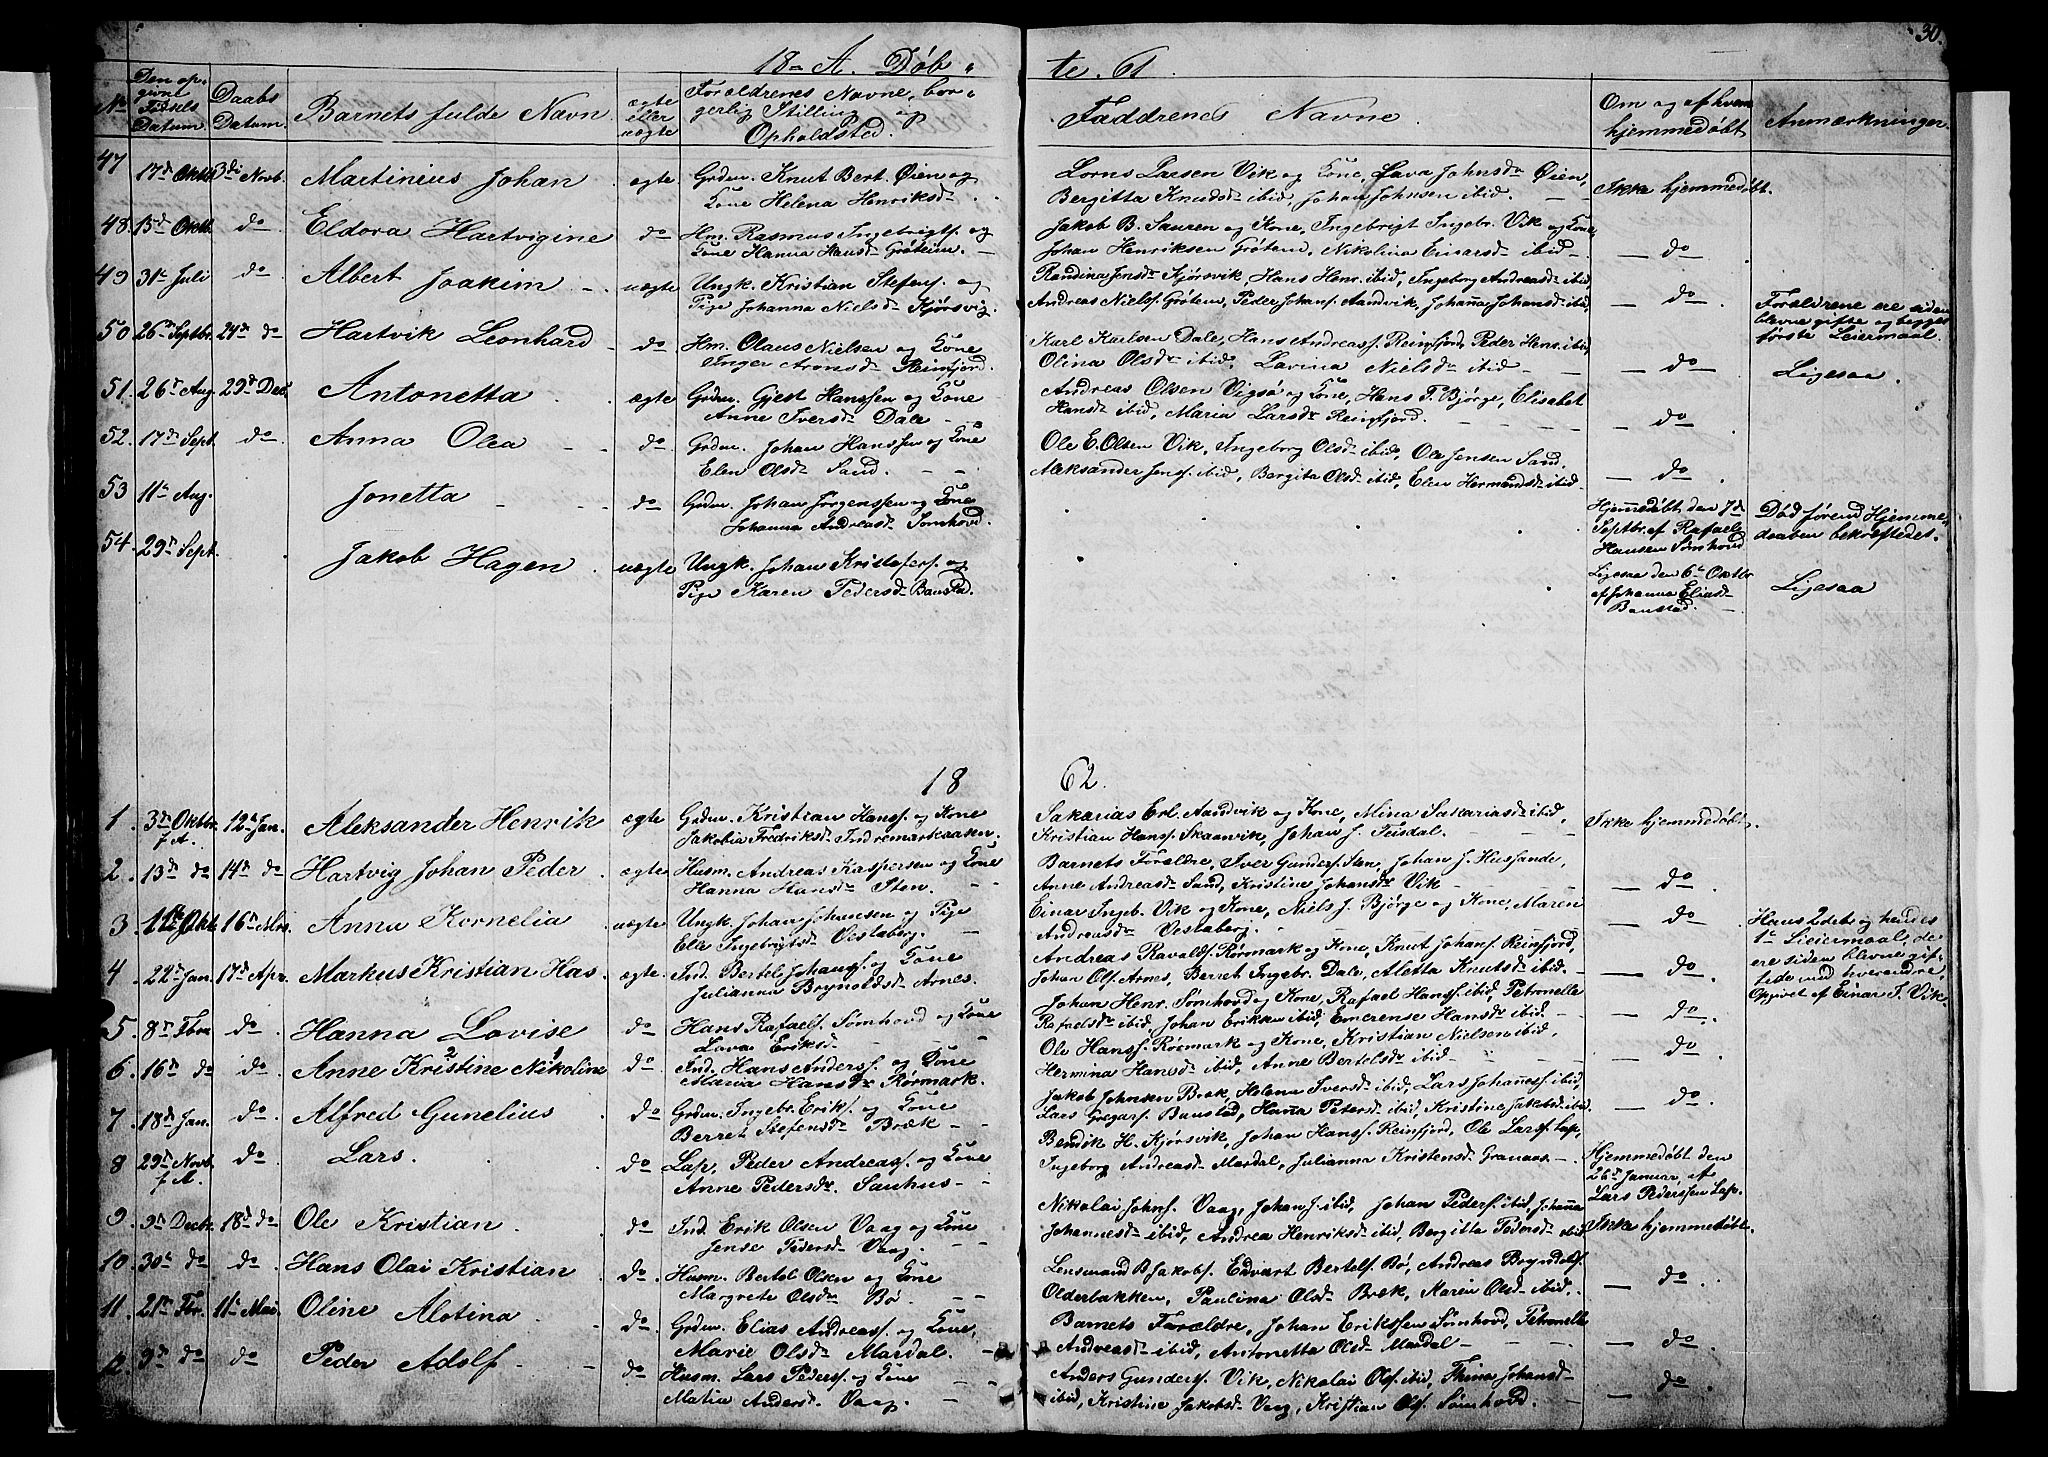 30.
18 - A. Døb - te. 61.
No
Den opgivne Fødsels Datum
Daabs Datum.
Barnets fulde Navn
ægte eller uægte
Forældrenes Navne, borgerlig Stilling og Opholdsted.
Faddrenes Navne.
Om og af hvem hjemmedøbt
Anmærkninger.
47 17d Oktb. 3di Novb. Martinius Johan ægte Grdm. Knut Bert. Øien og
Kone Helena Henriksd.
Lorns Larsen Vik og Kone, Lava Johnsdr Øien,
Bergitta Knudsd ibid, Johan Johnsen ibid.
Ikke hjemmedøbt.
48. 15d Oktb. do. Eldora Hartvigine do Hm. Rasmus Ingebrigts. og
Kone Hanna Hansd Grøtein.
Jakob B. Sauren og Kone, Ingebrigt Ingebr. Vik og Kone,
Johan Henriksen Grøtend, Nikolina Einarsd ibid
do.
49 31t Juli do. Albert Joakim uægte Ungk. Kristian Stefens. og
Pige Johanna Nielsd Kjørsvig.
Randina Jensdr Kjørsvik, Hans Henr. ibid, Ingeborg Andreasd ibid,
Andreas Niels. Grøten, Peder Johans. Aandvik, Johanna Johansd ibid,
do
Forældrene ere siden
blevne gifte og begges
første Leiermaal.
50 26d Septbr. 24de do Hartvik Leonhard do. Hm. Olaus Nielsen og Kone
Inger Aronsd Reinfjord.
Karl Karlsen Dale, Hans Andreass. Reinfjord, Peder Henr. ibid,
Olina Olsdr ibid, Lavina Nielsd ibid
do
Ligesaa.
51. 26d Aug. 29d Decb. Antonetta ægte Grdm. Gjest Hanssen og Kone
Anne Iversd Dale
Andreas Olsen Vigsø og Kone, Hans T. Bjørge, Elisabet
Hansd ibid, Maria Larsdr Reinfjord.
do
52. 17d Sept. do. Anna Olea do. Grdm. Johan Hanssen og Kone
Elen Olsd Sand.
Ole E. Olsen Vik, Ingeborg Olsd ibid, Ole Jensen Sand.
Aleksander Jens. ibid, Bergita Olsd ibid, Elen Hermandsd ibid
do
53 11t Aug. Jonetta do Grdm. Johan Jørgenssen og Kone
Johanna Andreasd Sømhovd.
Hjemmedøbt den 7d
Septbr. af Rafael
Hansen Sømhovd
Død førend Hjemme-
daaben bekræftedes.
54. 29d Sept. Jakob Hagen uægte Ungk. Johan Kristofers. og
Pige Karen Pedersd Baustad.
Ligesaa den 6t Oktbr
af Johanna Eliasd
Baustad.
Ligesaa
18 62.
1. 3d Oktbr. f A. 12t Jan. Aleksander Henrik ægte Grdm. Kristian Hans. og Kone
Jakobia Fredriksd Indremarkaaken.
Sakarias Erl. Aandvik og Kone, Mina Sakariasd ibid,
Kristian Hans. Skaanvik, Johan J. Teisdal.
Ikke hjemmedøbt.
2. 13d do 14d do Hartvig Johan Peder ægte Husm. Andreas Kaspersen og Kone
Hanna Hansd Sten.
Barnets Forældre, Iver Gunders. Sten, Johan J.
Anne Andreasd Sand, Kristine Johansdr Vik
do.
3. Okt. 16d Mrs. Anna Kornelia uægte Ungk. Johan Johansen og Pige
Ele Ingebrigtsd Vestaberg.
Einar Ingeb. Vik og Kone, Niels J. Bjørge og Kone, Maren
Andreasd Vestaberg.
do
Hans 2det og hendes
1t Leiermaal, de
ere siden blevne gif-
tede med hverandre
Opgivet af Einar I. Vik.
4 22d Jan. 17d Apr. Markus Kristian Has. ægte. Ind. Bertel Johans. og Kone
Julianna Brynoldsd Arnes.
Andreas Ravalds. Rørmark og Kone, Knut Johans. Reinfjord,
Johan Ols. Arnes, Berret Ingebr. Dale, Aletta Knutsd ibid.
do.
5. 8d Fbra do. Hanna Lovise do Hans Rafaels. Sømhovd og Kone
Lava Eriksd
Johan Henr. Sømhovd og Kone, Rafael Hans. ibid, Petronelle
Rafaelsd ibid, Johan Erikken ibid, Emerense Hansd ibid.
do.
6. 16d do do. Anne Kristine Nikoline do. Ind. Hans Anders. og Kone
Maria Hansdr Rørmark.
Ole Hans. Rørmark og Kone, Kristian Nielsen ibid,
Hermina Hansd ibid, Anne Bertelsdr ibid
do
7. 18d Jan. do. Alfred Gunelius do Grdm. Ingebr. Eriks. og Kone
Berret Stefensd Bræk
Jakob Johnsen Bræk, Helena Iversd ibid, Lars Johannes. ibid,
Lars Gregars. Baustad, Hanna Petersd ibid, Kristine Jakobsd ibid.
do.
8 29d Novb. f A. do. Lars. do. Lap. Peder Andreass. og Kone
Anne Pedersdr. Sauhus
Bendik H. Kjørsvik, Johan Hans. Reinfjord, Ole Lars. Lap,
Ingeborg Andreasd Mardal, Julianna Kristensd Granaas
Hjemmedøbt den
26d Januar, af
Lars Pederssen Lap.
9. 9d Decb. 18d do Ole Kristian. do. Ind. Erik Olsen Vaag og Kone
Jense Pedersd Vaag.
Nikolai Johns. Vaag, Johan J. ibid, Johan Peders. ibid, Johanna
Johannesd ibid, Andrea Henriksd ibid, Bergitta Pedersd ibid
Ikke hjemmedøbt.
10. 30t do do. Hans Olai Kristian do. Husm. Bertel Olsen og Kone
Margrete Olsd Bø.
Lensmand B. Jakobs. Edvart Bertels. Bø, Andreas Brynolds.
Olderbakken, Paulina Olsd Bræk, Maren Olsd ibid.
do.
11. 21d Fbr. 11t Mai. Oline Alotina do. Grdm. Elias Andreass. og Kone,
Marie Olsd Mardal.
Barnets Forældre, Johan Erikssen Sømhovd, Petronelle
Andreasd ibid, Antonetta Olsd Mardal
do.
12. 9d do do Peder Adolf do Husm. Lars Peders. og Kone
Matia Andersd. Vaag.
Anders Gunders. Vik, Nikolai Ols. ibid, Thina Johansd
ibid, Kristine Jakobsd Vaag, Kristian Ols. Sømhovd.
do.